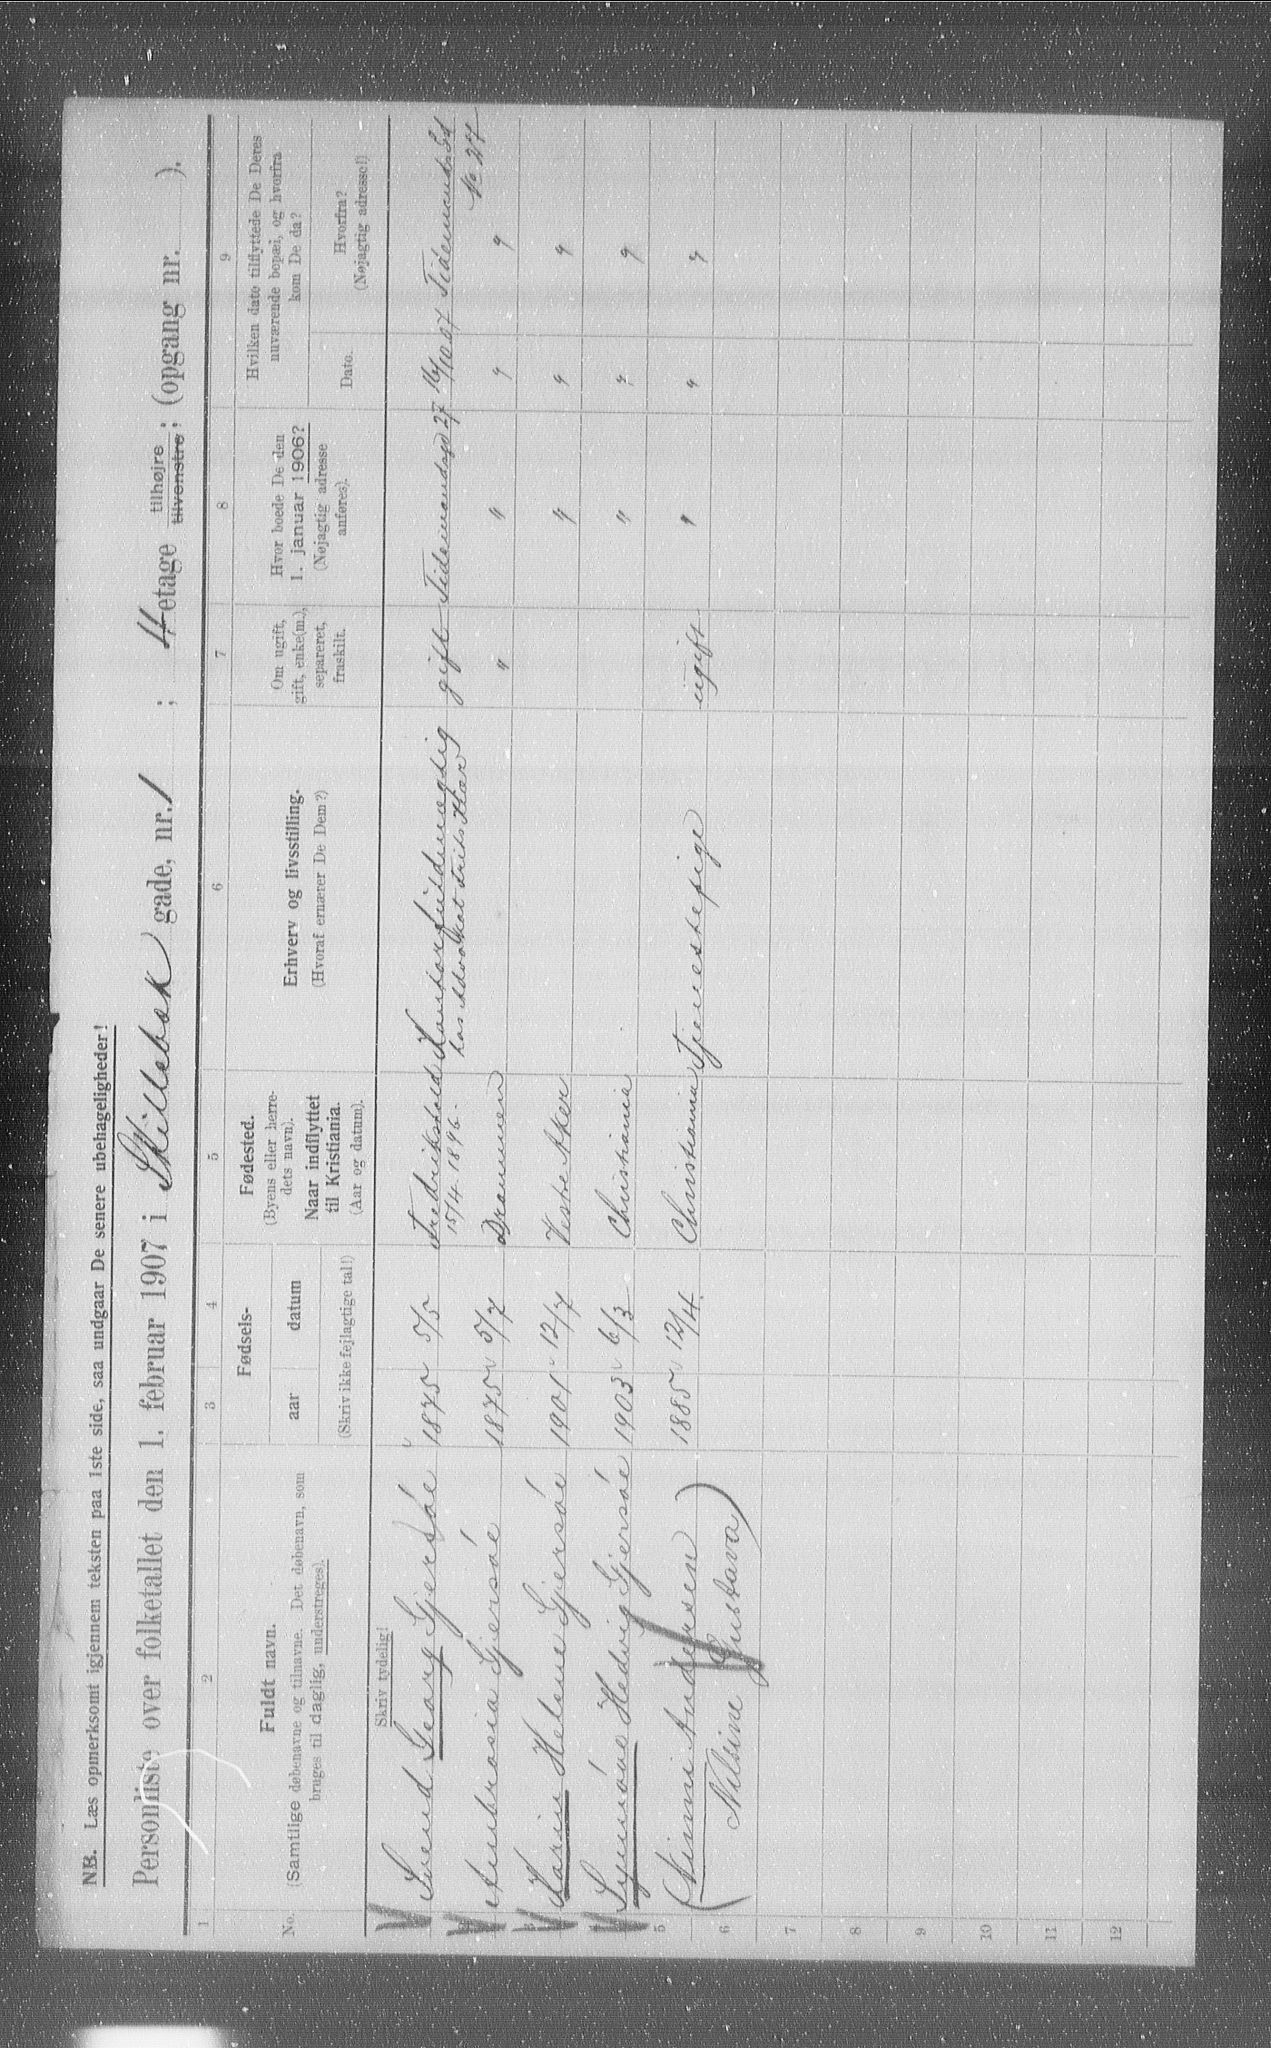 NB. Læs opmerksomt igjennem teksten paa 1ste side, saa undgaar De senere ubehageligheder!
Personliste over folketallet den 1. februar 1907 i Skillebæk gade, nr. 1 ; 4 etage tilhøjre tilvenstre ; (opgang nr. ).
1 2 3 4 5 6 7 8 9
No.
Fuldt navn.
(Samtlige døbenavne og tilnavne. Det døbenavn, som
bruges til daglig, understreges).
Fødsels-
aar datum
(Skriv ikke fejlagtige tal!)
Fødested.
(Byens eller herre-
dets navn).
Naar indflyttet
til Kristiania.
(Aar og datum).
Erhverv og livsstilling.
(Hvoraf ernærer De Dem?)
Om ugift,
gift, enke(m.),
separeret,
fraskilt.
Hvor boede De den
1. januar 1906?
(Nøjagtig adresse
anføres).
Hvilken dato tilflyttede De Deres
nuværende bopæl, og hvorfra
kom De da?
Dato.
Hvorfra?
(Nøjagtig adresse!)
Skriv tydelig!
Svend Georg Gjersøe 1875 5/5 Fredrikstad Kontorfuldmægtig gift Tidemandsgd 27 16/10 07 Tidemandsgd
15/4 1896. hos Advokat No 27
Ambrosia Gjersøe 1875 5/7 Drammen " " " "
Karin Helene Gjersøe 1901 12/7 Vestre Aker " " "
Synnøve Hedvig Gjersøe 1903 6/3 Christiania " " "
5 (Minni Andersen 1885 12/4 Christiania Tjenestepige ugift " " "
6 Nilsine Gustava)
7
8
9
10
11
12